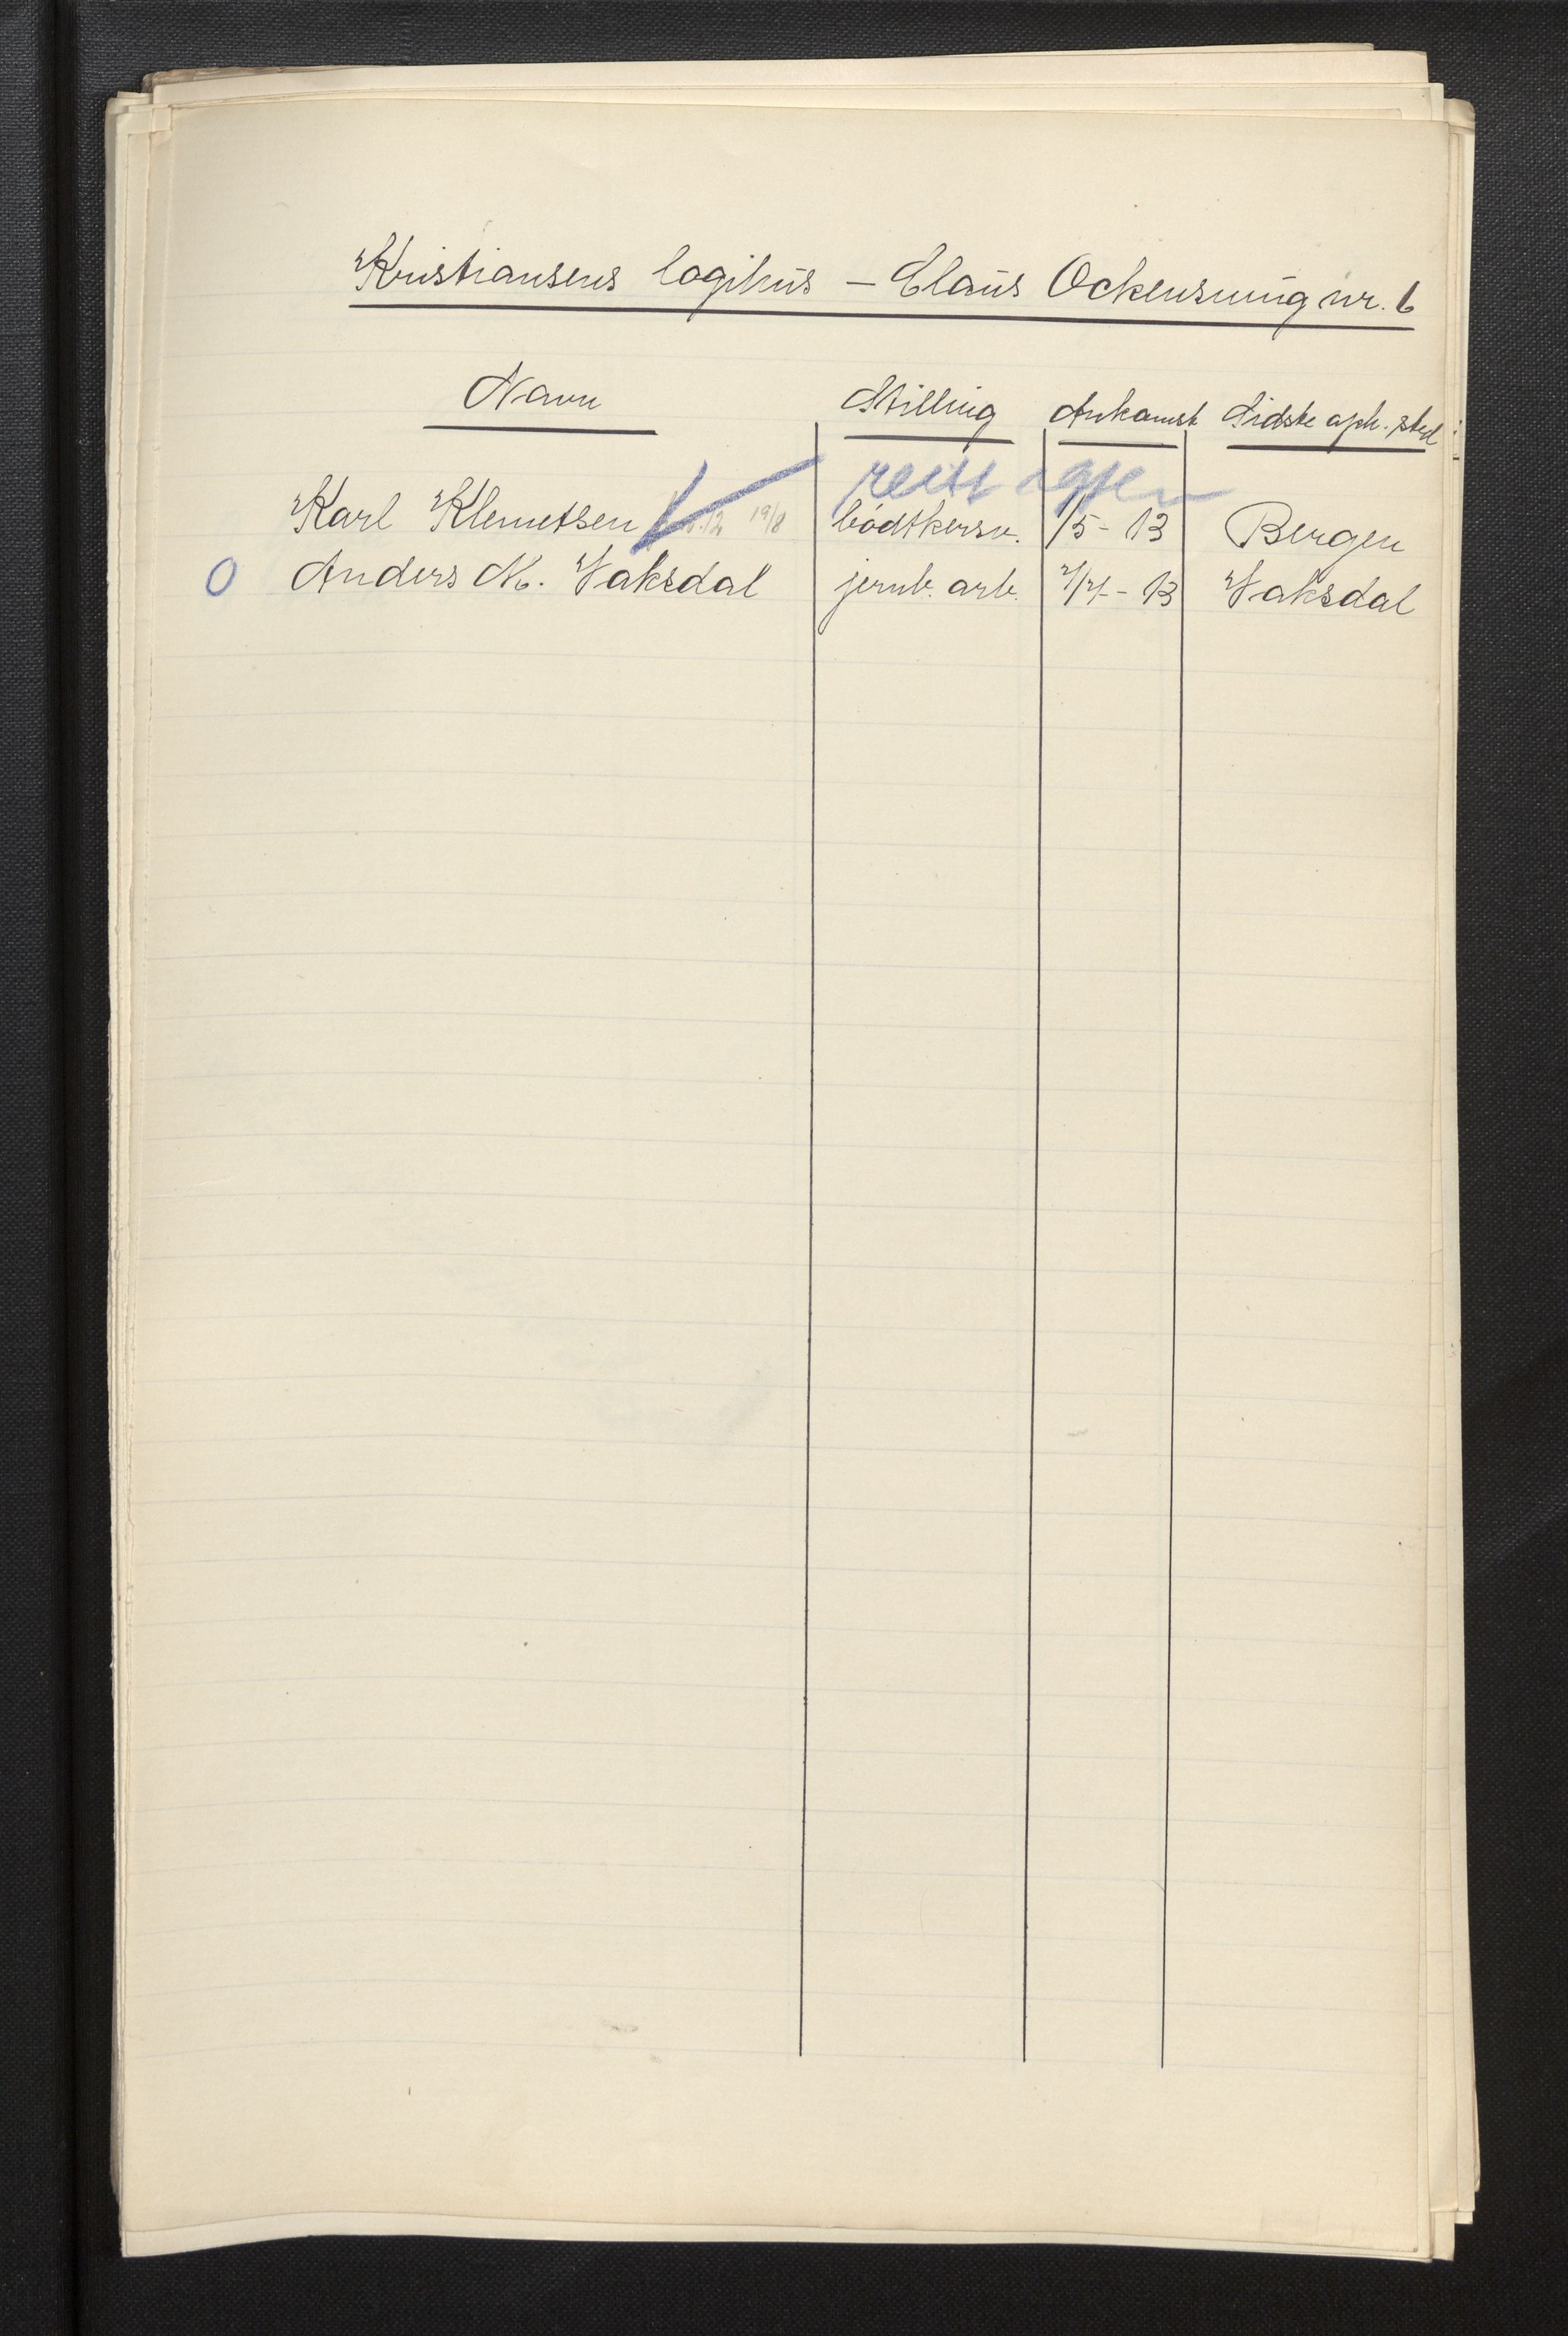 Kristiansens logihus – Claus Ockensmug nr. 6
Navn Stilling Ankomst Sidste oph. sted
reist igjen
Karl Klemetsen 19/8 bødtkersv. 1/5 - 13 Bergen
O Anders M. Vaksdal jernb. arb. - 13 Vaksdal